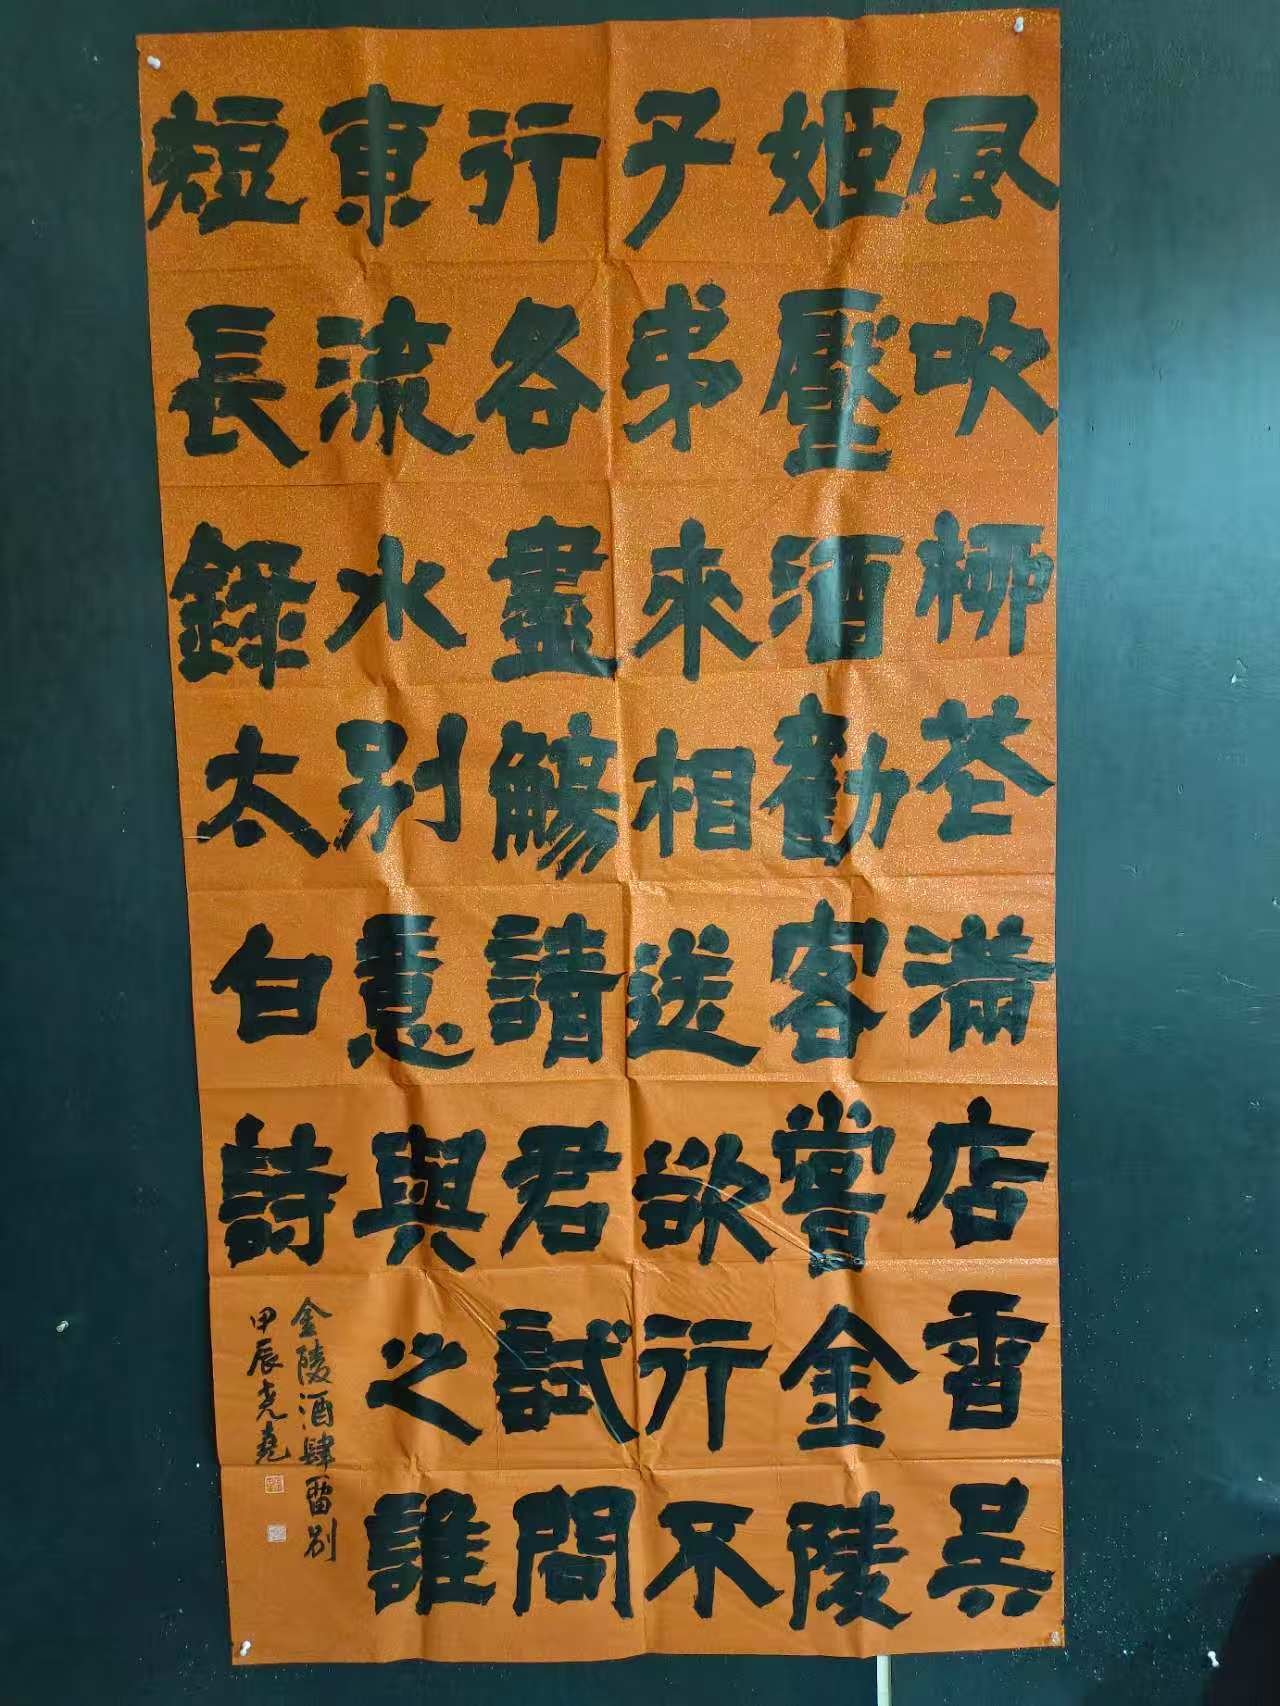 風吹柳花滿店香吳
姬壓酒勸客嘗金陵
子弟來相送欲行不
行各盡觴請君試問
東流水別意與之誰
短長錄太白詩
金陵酒肆畱別
甲辰堯堯